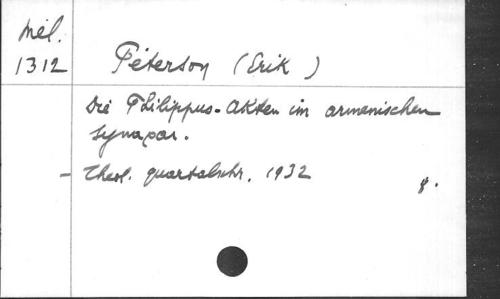 Mél.
1312
Péterson (Erik )
Die Philippus-Akten im armenischen
Synaxar.
- Theol. quartalschr. 1932
8.